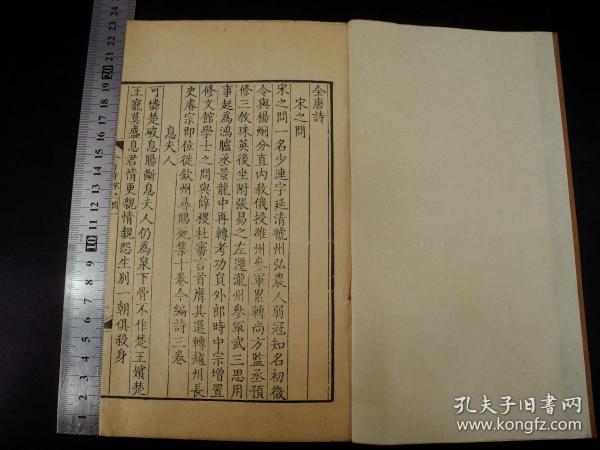 全唐詩
宋之問
宋之問一名少連字延清虢州弘農人弱冠知名初徵
令與楊烱分直内教俄授雒州參軍累轉尚方監丞預
修三教珠英後坐附張易之左遷瀧州參軍武三思用
事起為鴻臚丞景龍中再轉考功員外郎時中宗增置
修文館學士之問與薛稷杜審言首膺其選轉越州長
史睿宗即位徙欽州尋賜死集十卷今編詩三卷
息夫人
可憐楚破息腸斷息夫人仍為泉下骨不作楚王嬪楚
王寵莫盛息君情更親情親怨生別一朝俱殺身
孔夫子旧書网
www.kongfz.com
1 2 3 4 5 6 7 8 9 10 11 12 13 14 15 16 17 18 19 20 21 22 23 24